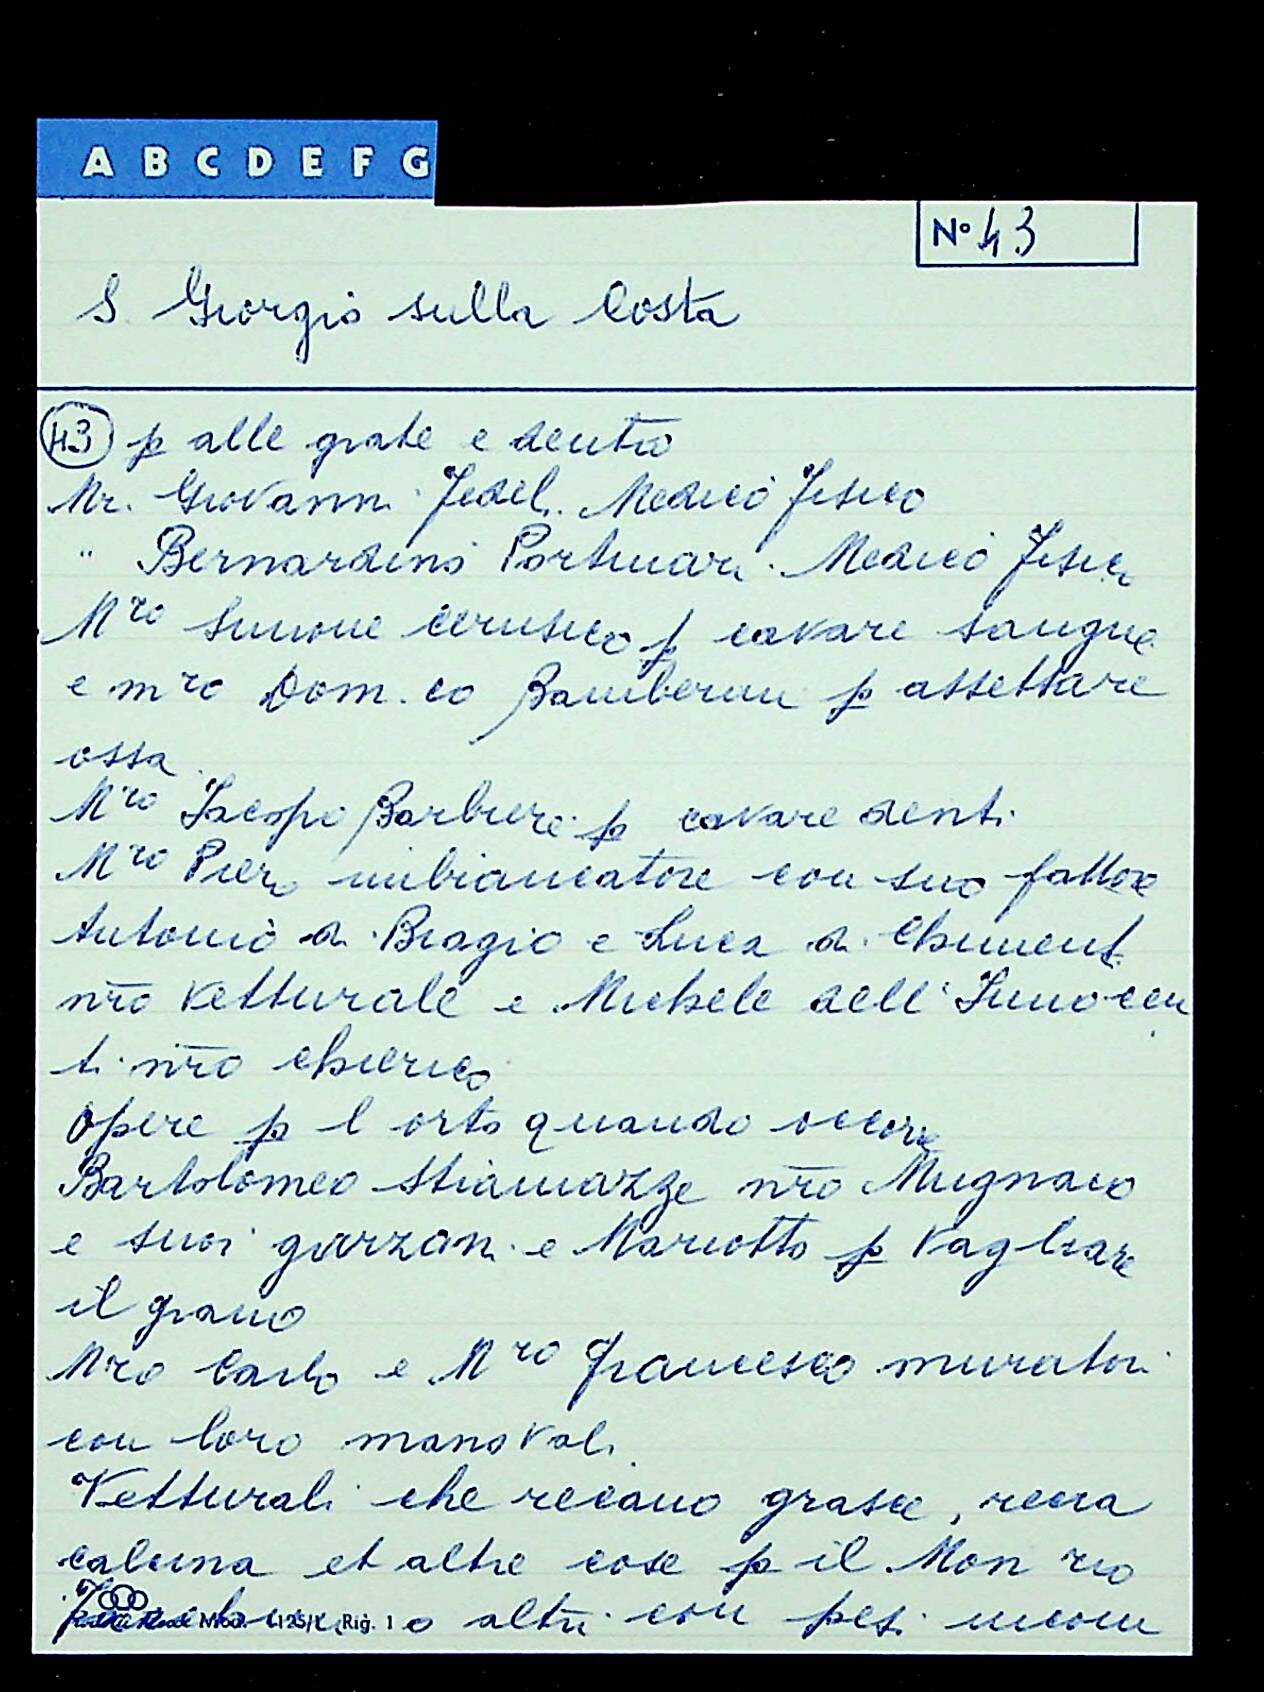 A B C D E F G
N° 43
S. Giorgio sulla Costa
43 p alle grate e dentro
Mr. Giovanni Fedeli. Medico Fisico
" Bernardino Portinari. Medico Fisico
Mro Simone cerusico p cavare sangue
e mro Dom.co Bamberini p assettare
ossa.
Mro Iacopo Barbiere p cavare denti
Mro Piero imbiancatore con suo fattore
Antonio di Biagio e Luca di Chimenti
nr̄o vetturale e Michele dell'Innocen
ti nr̄o chierico
Opere p l orto quando occorre
Bartolomeo Stiamazze nr̄o Mugnaio
e suoi garzoni e Mariotto p vagliare
il grano
Mro Carlo e Mro Francesco muratori
con loro manovali
Vetturali che recano grasce, rena
calcina et altre cose p il Mon rio
Mod. 125/1 Rig. 1 o altri con pesi incom